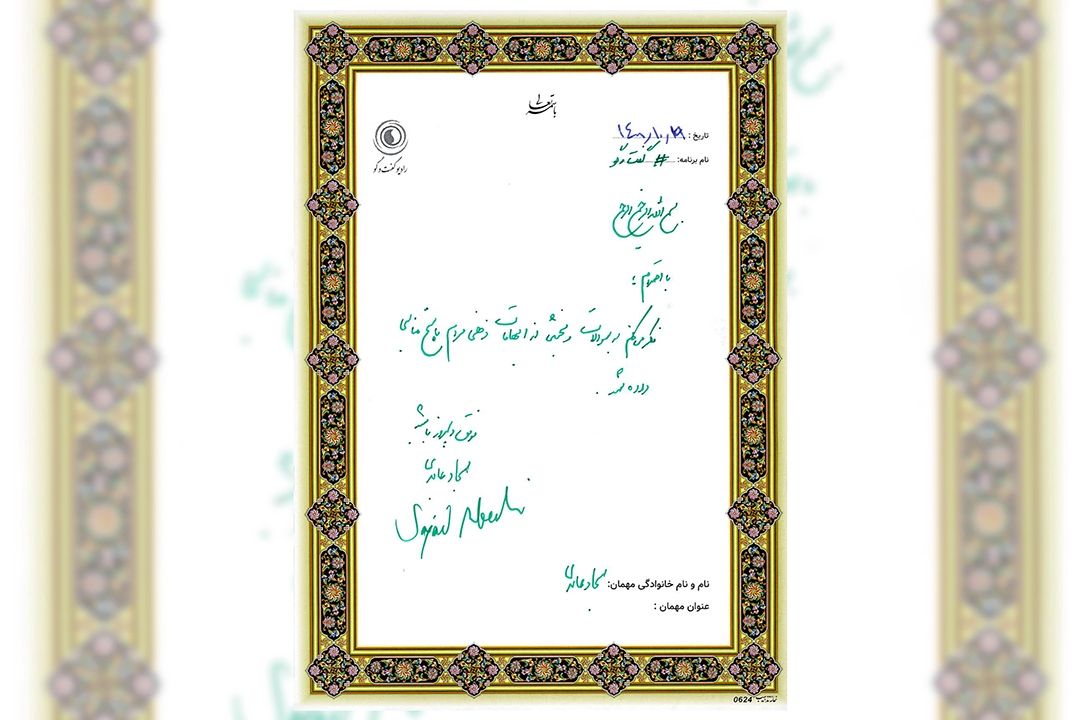 باسمه تعالی
رادیو گفت و گو
تاریخ :
نام برنامه: # گفت و گو
بسم الله الرحمن الرحیم
با احترام ؛
فکر می‌کنم به سوالات و بخشی از ابهامات ذهنی مردم پاسخ مناسبی
داده شد .
موفق و پیروز باشید
سجاد عابدی
نام و نام خانوادگی مهمان: سجاد عابدی
عنوان مهمان :
0624